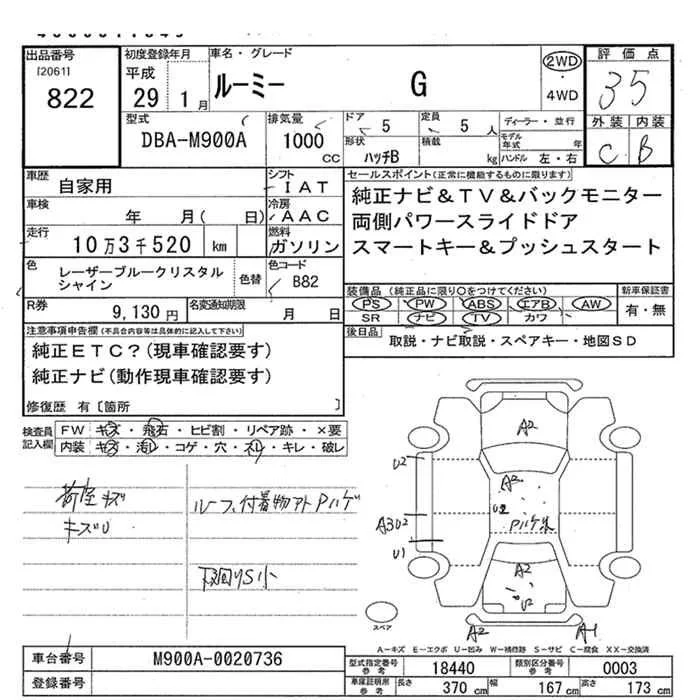 出品番号
[2061]
822
初度登録年月
平成
29 1月
車名・グレード
ルーミー G
2WD
・
4WD
評価点
35
外装 内装
C B
型式
DBA-M900A
排気量
1000
CC
ドア
5
形状
ハッチB
定員
5人
積載
kg
ディーラー・並行
モデル年式 年
ハンドル 左・右
車歴
自家用
シフト
IAT
車検
年 月( 日)
冷房
AAC
走行
10万3千520 km
燃料
ガソリン
色
レーザーブルークリスタル
シャイン
色替
色コード
B82
R券
9,130円
名変通知期限
月 日
セールスポイント(正常に機能するものに限ります)
純正ナビ&TV&バックモニター
両側パワースライドドア
スマートキー&プッシュスタート
装備品(純正品に限り○をつけてください)
PS PW ABS エアB AW
SR ナビ TV カワ
新車保証書
有・無
後日品
取説・ナビ取説・スペアキー・地図SD
注意事項申告欄(不具合内容等は具体的に記入して下さい)
純正ETC?(現車確認要す)
純正ナビ(動作現車確認要す)
修復歴 有[箇所 ]
検査員
記入欄
FW キズ・飛石・ヒビ割・リペア跡・×要
内装 キズ・汚れ・コゲ・穴・スレ・キレ・破レ
荷室キズ
キズU
ルーフ付着物アトPハゲ
下廻りS小
A2
U2
A2
U2
A3U2
Pハゲ
U1
A2
U2
A2
A1
スペア
A−キズ E−エクボ U−凹み W−補修跡 S−サビ C−腐食 XX−交換済
車台番号
M900A-0020736
登録番号
型式指定番号
参考
18440
類別区分番号
参考
0003
車庫証明用
参考
長さ 370cm 幅 167cm 高さ 173cm